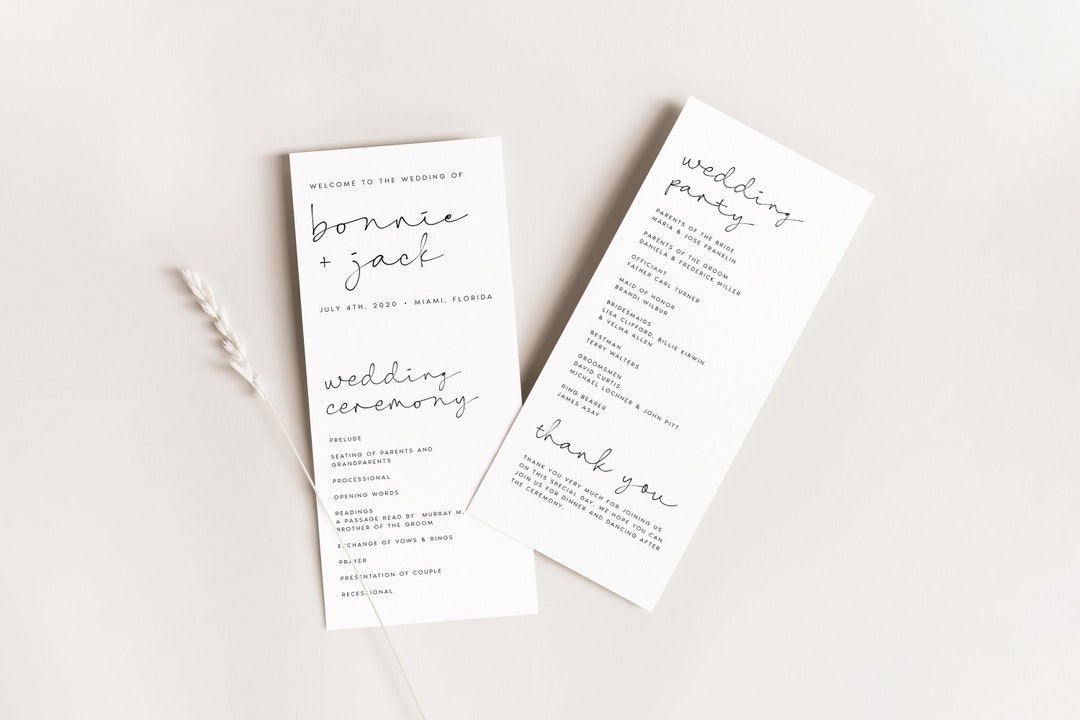 WELCOME TO THE WEDDING OF
bonnie
+ jack
JULY 4TH, 2020 • MIAMI, FLORIDA
wedding
ceremony
PRELUDE
SEATING OF PARENTS AND
GRANDPARENTS
PROCESSIONAL
OPENING WORDS
READINGS
A PASSAGE READ BY MURRAY M.
BROTHER OF THE GROOM
EXCHANGE OF VOWS & RINGS
PRAYER
PRESENTATION OF COUPLE
RECESSIONAL
wedding
party
PARENTS OF THE BRIDE
MARIA & JOSE FRANKLIN
PARENTS OF THE GROOM
DANIELA & FREDERICK MILLER
OFFICIANT
FATHER CARL TURNER
MAID OF HONOR
BRANDI WILBUR
BRIDESMAIDS
LISA CLIFFORD, BILLIE KIRWIN
& VELMA ALLEN
BESTMAN
TERRY WALTERS
GROOMSMEN
DAVID CURTIS,
MICHAEL LOCHNER & JOHN PITT
RING BEARER
JAMES ASAY
thank you
THANK YOU VERY MUCH FOR JOINING US
ON THIS SPECIAL DAY. WE HOPE YOU CAN
JOIN US FOR DINNER AND DANCING AFTER
THE CEREMONY.